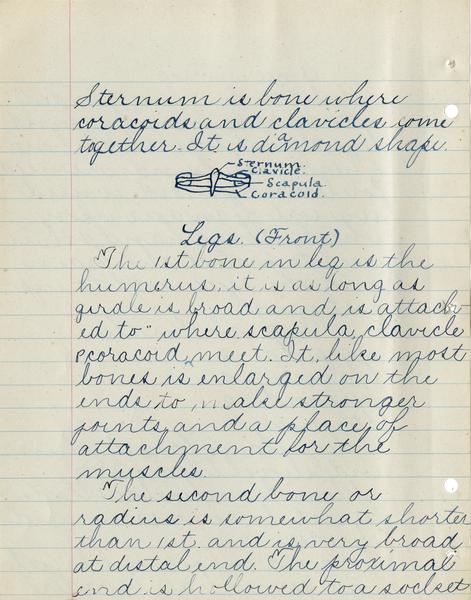 Sternum is bone where
coracoids and clavicles come
together. It is diamond shape.
Sternum.
Clavicle.
Scapula.
Coracoid.
Legs. (Front)
The 1st bone in leg is the
humerus. it is as long as
girdle is broad and is attach-
ed to " where scapula, clavicle
& coracoid, meet. It, like most
bones is enlarged on the
ends to make stronger
joints and a place of
attachment for the
muscles.
The second bone or
radius is somewhat shorter
than 1st. and is very broad
at distal end. The proximal
end is hollowed to a socket